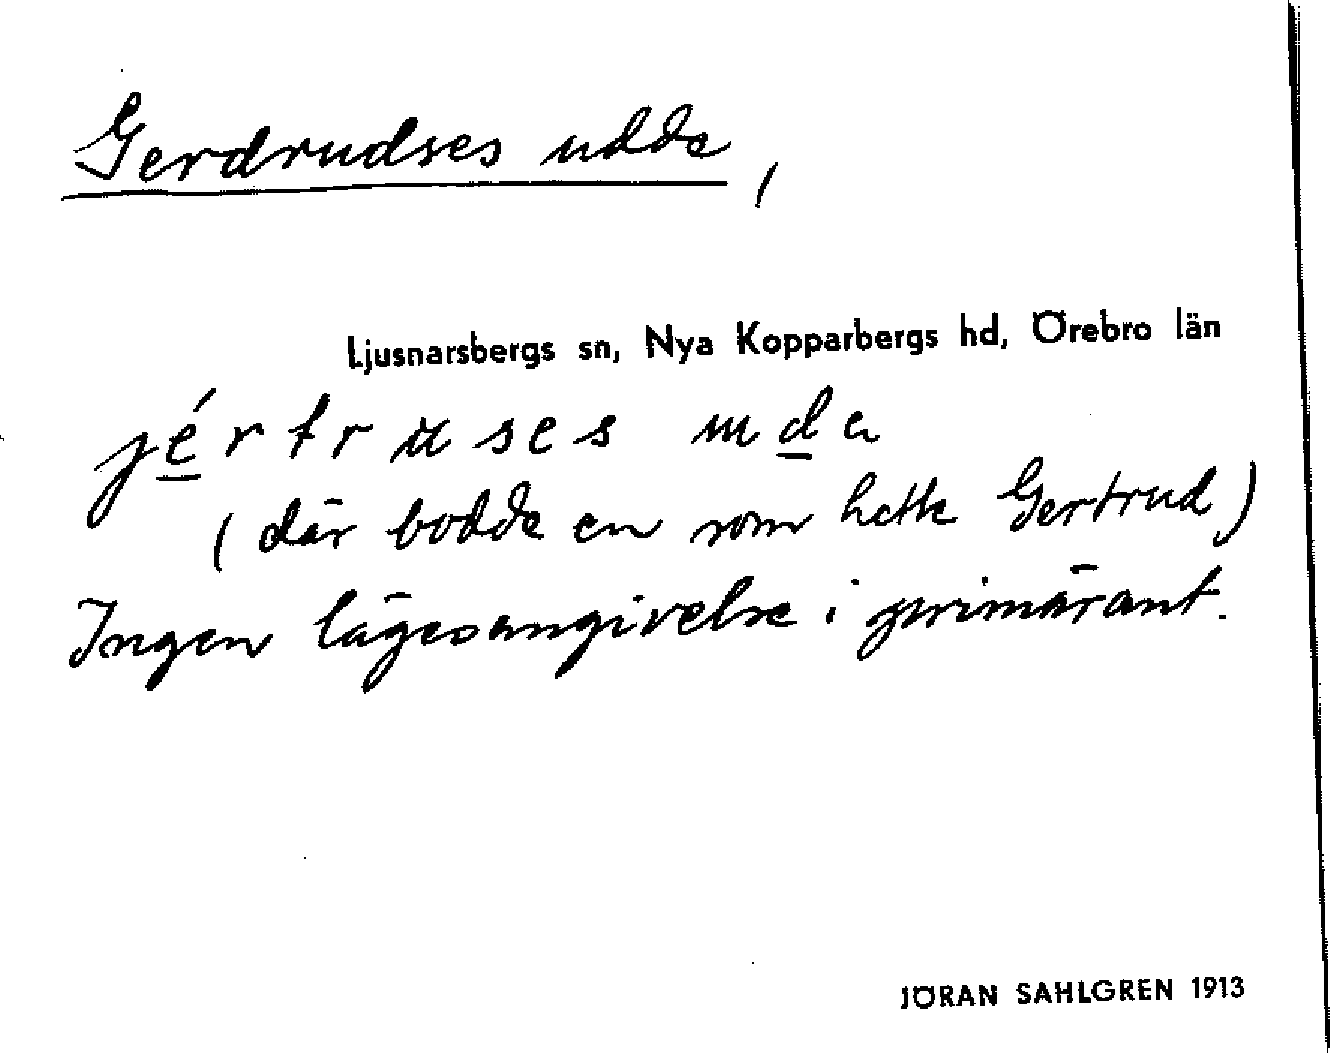 Gerdrudses udde,
Ljusnarsbergs sn, Nya Kopparbergs hd, Örebro län
jértruses uda
(där bodde en som hette Gertrud)
Ingen lägesangivelse i primärant.
JÖRAN SAHLGREN 1913